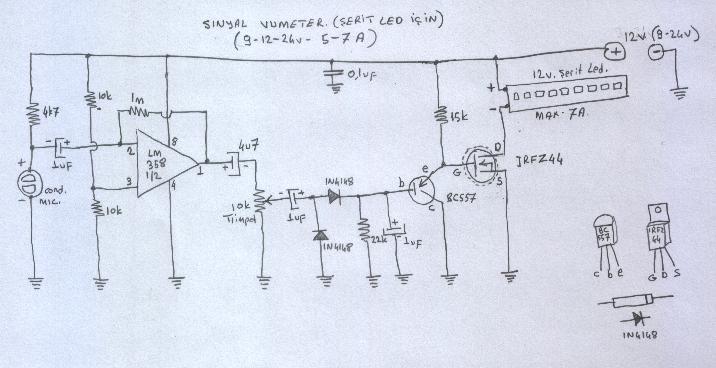 SİNYAL VUMETER. (ŞERİT LED İÇİN)
(9-12-24v - 5-7A)
12v. (9-24v)
+
-
0,1uF
12v. Şerit Led.
+
-
MAX. 7A.
4k7
10k
1m
15k
+
-
cond.
mic.
- +
1uF
2
3
8
4
1
LM
358
1/2
10k
4u7
+ -
10k
Trimpot
- +
1uF
1N4148
1N4148
22k
+
1uF
b
e
c
BC557
G
D
S
IRFZ44
BC
557
c b e
IRFZ
44
G D S
1N4148